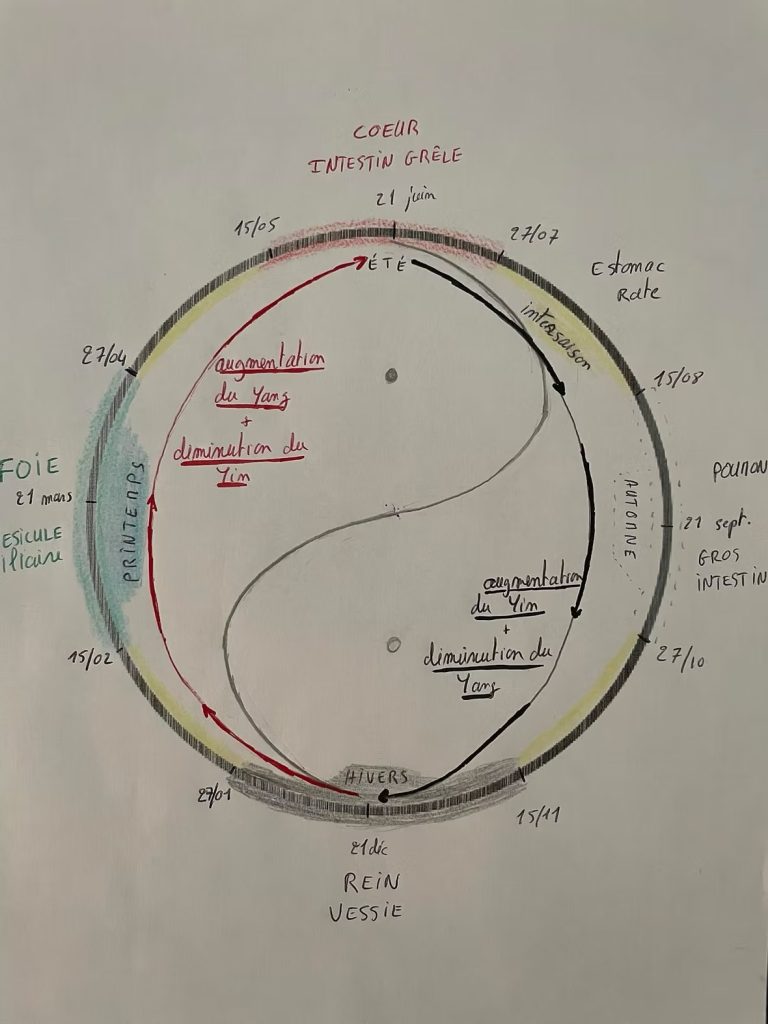 COEUR
INTESTIN GRÊLE
21 juin
15/05
27/07
ÉTÉ
Estomac
Rate
intersaison
27/04
15/08
augmentation
du Yang
+
diminution du
Yin
FOIE
21 mars
ESICULE
iliaire
PRINTEMPS
AUTOMNE
POUMON
21 sept.
GROS
INTESTIN
augmentation
du Yin
+
diminution du
Yang
15/02
27/10
27/01
HIVERS
15/11
21 déc
REIN
VESSIE